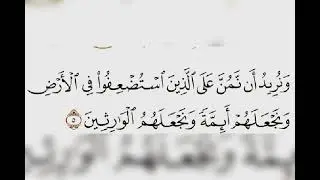 وَنُرِيدُ أَن نَّمُنَّ عَلَى ٱلَّذِينَ ٱسْتُضْعِفُوا۟ فِى ٱلْأَرْضِ
وَنَجْعَلَهُمْ أَئِمَّةً وَنَجْعَلَهُمُ ٱلْوَٰرِثِينَ ٥